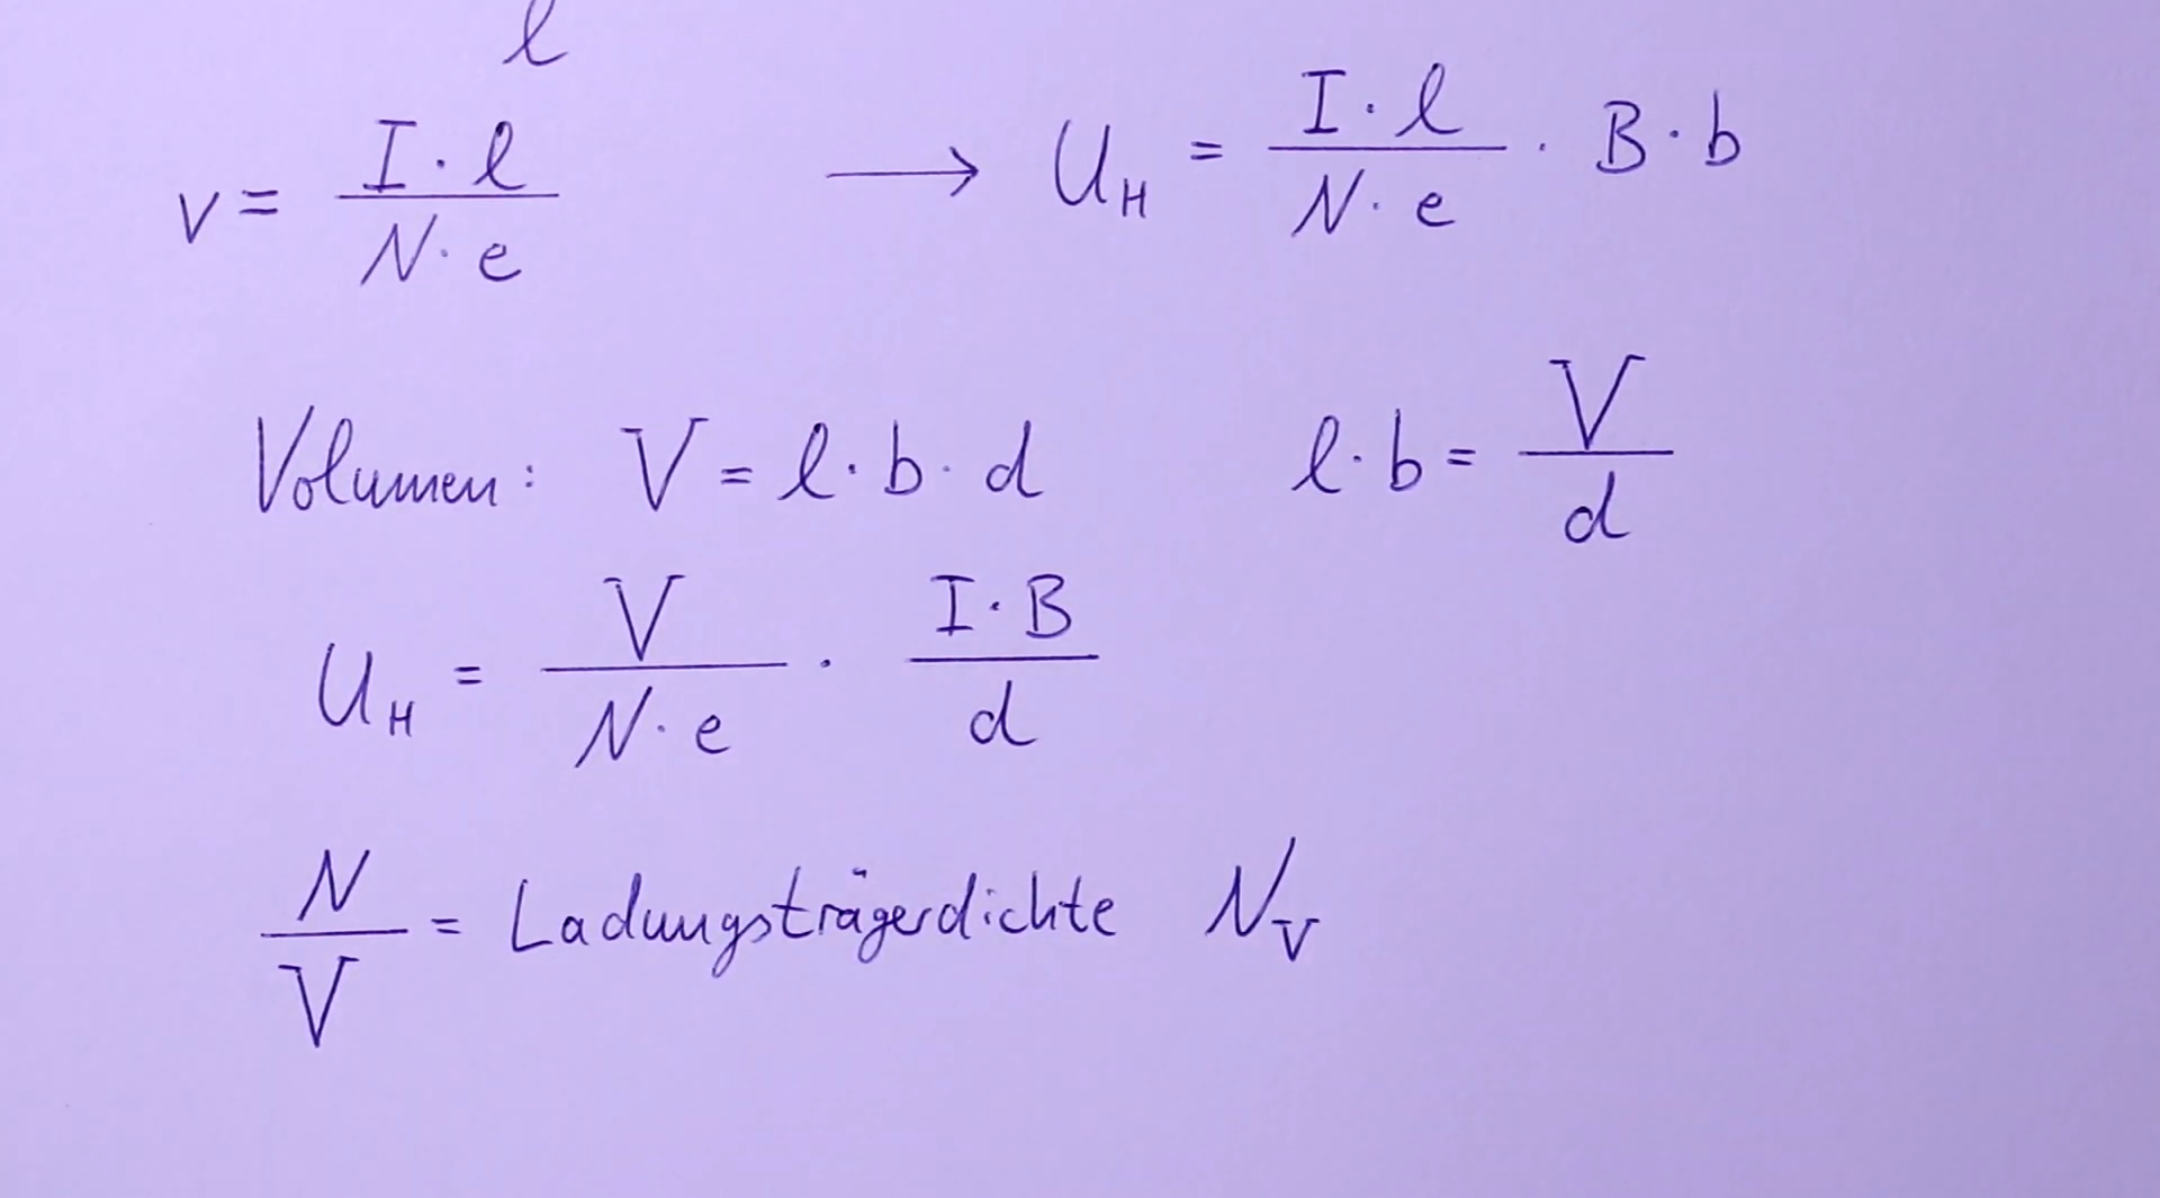 l
v = I · l / N · e → U_H = I · l / N · e · B · b
Volumen: V = l · b · d l · b = V / d
U_H = V / N · e · I · B / d
N / V = Ladungsträgerdichte N_V